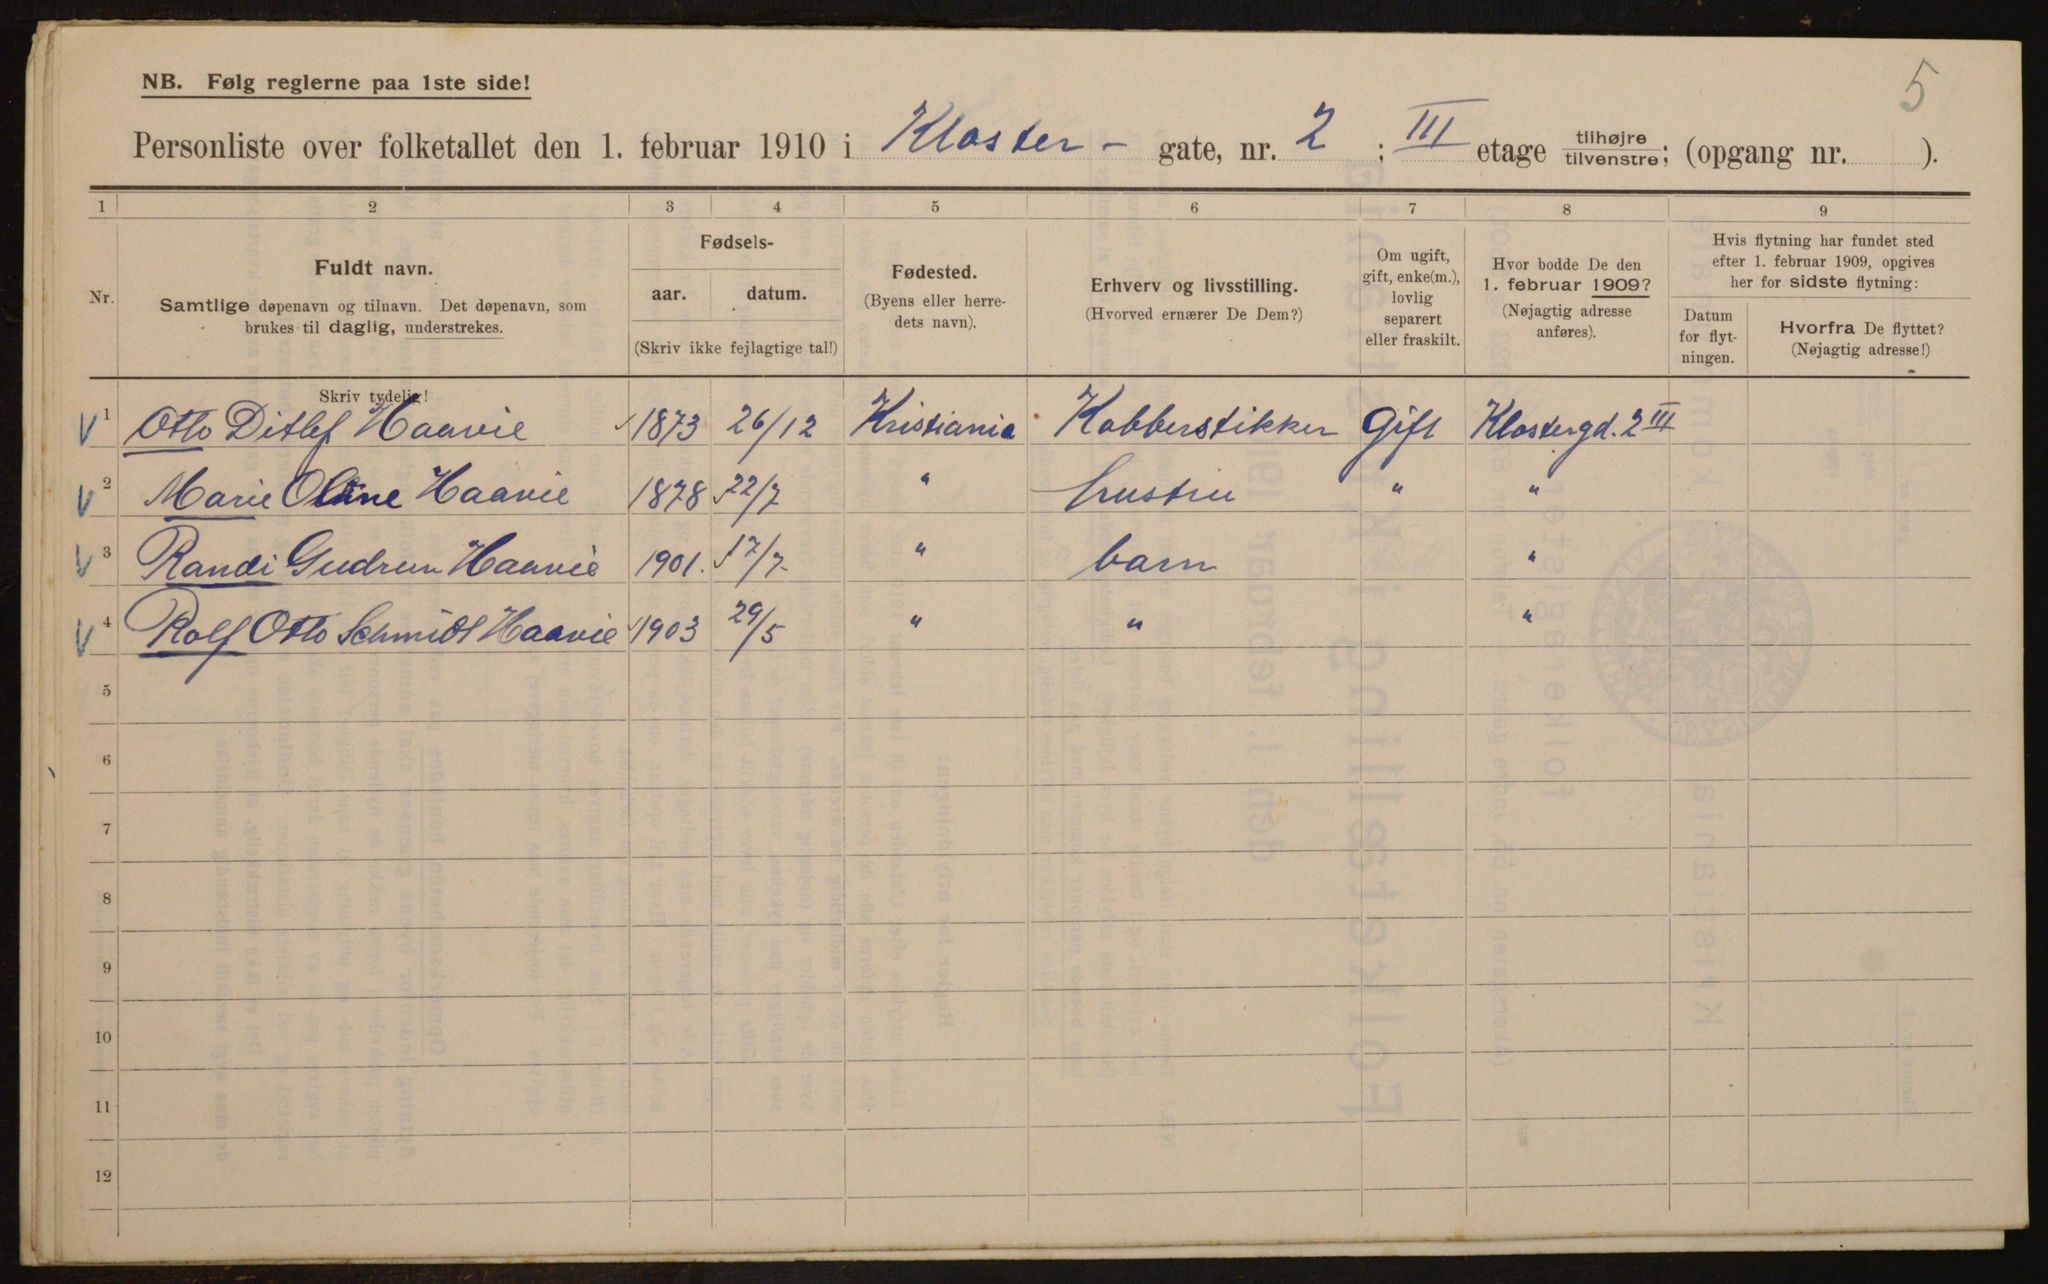 5
NB. Følg reglerne paa 1ste side!
Personliste over folketallet den 1. februar 1910 i Kloster- gate, nr. 2 ; III etage tilhøjre/tilvenstre; (opgang nr. ).
1 2 3 4 5 6 7 8 9
Nr.
Fuldt navn.
Samtlige døpenavn og tilnavn. Det døpenavn, som
brukes til daglig, understrekes.
Fødsels-
aar. datum.
(Skriv ikke fejlagtige tal!)
Fødested.
(Byens eller herre-
dets navn).
Erhverv og livsstilling.
(Hvorved ernærer De Dem?)
Om ugift,
gift, enke(m.),
lovlig
separert
eller fraskilt.
Hvor bodde De den
1. februar 1909?
(Nøjagtig adresse
anføres).
Hvis flytning har fundet sted
efter 1. februar 1909, opgives
her for sidste flytning:
Datum
for flyt-
ningen.
Hvorfra De flyttet?
(Nøjagtig adresse!)
Skriv tydelig!
1 Otto Ditlef Haavie 1873 26/12 Kristiania Kobberstikker Gift Klostergd. 2 III
2 Marie Oline Haavie 1878 22/7 " hustru " "
3 Randi Gudrun Haavie 1901. 17/7- " barn "
4 Rolf Otto Schmidt Haavie 1903 29/5 " " "
5
6
7
8
9
10
11
12